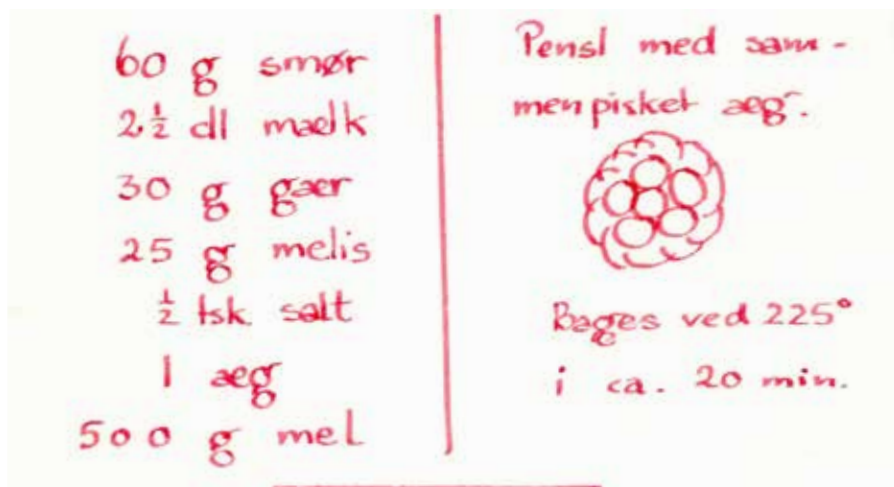 60 g smør
2½ dl mælk
30 g gær
25 g melis
½ tsk. salt
1 æg
500 g mel
Pensl med sam-
menpisket æg.
Bages ved 225°
i ca. 20 min.